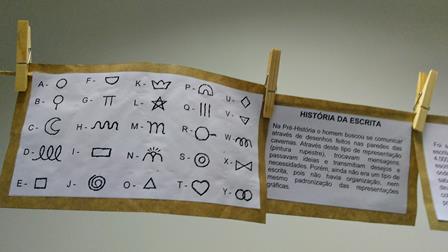 A - F - K - P - U -
B - G - L - Q - V -
C - H - M - R - W -
D - I - N - S - X -
E - J - O - T - Y -
HISTÓRIA DA ESCRITA
Na Pré-História o homem buscou se comunicar
através de desenhos feitos nas paredes das
cavernas. Através deste tipo de representação
(pintura rupestre), trocavam mensagens,
passavam ideias e transmitiam desejos e
necessidades. Porém, ainda não era um tipo de
escrita, pois não havia organização, nem
mesmo padronização das representações
gráficas.
Foi
4.000